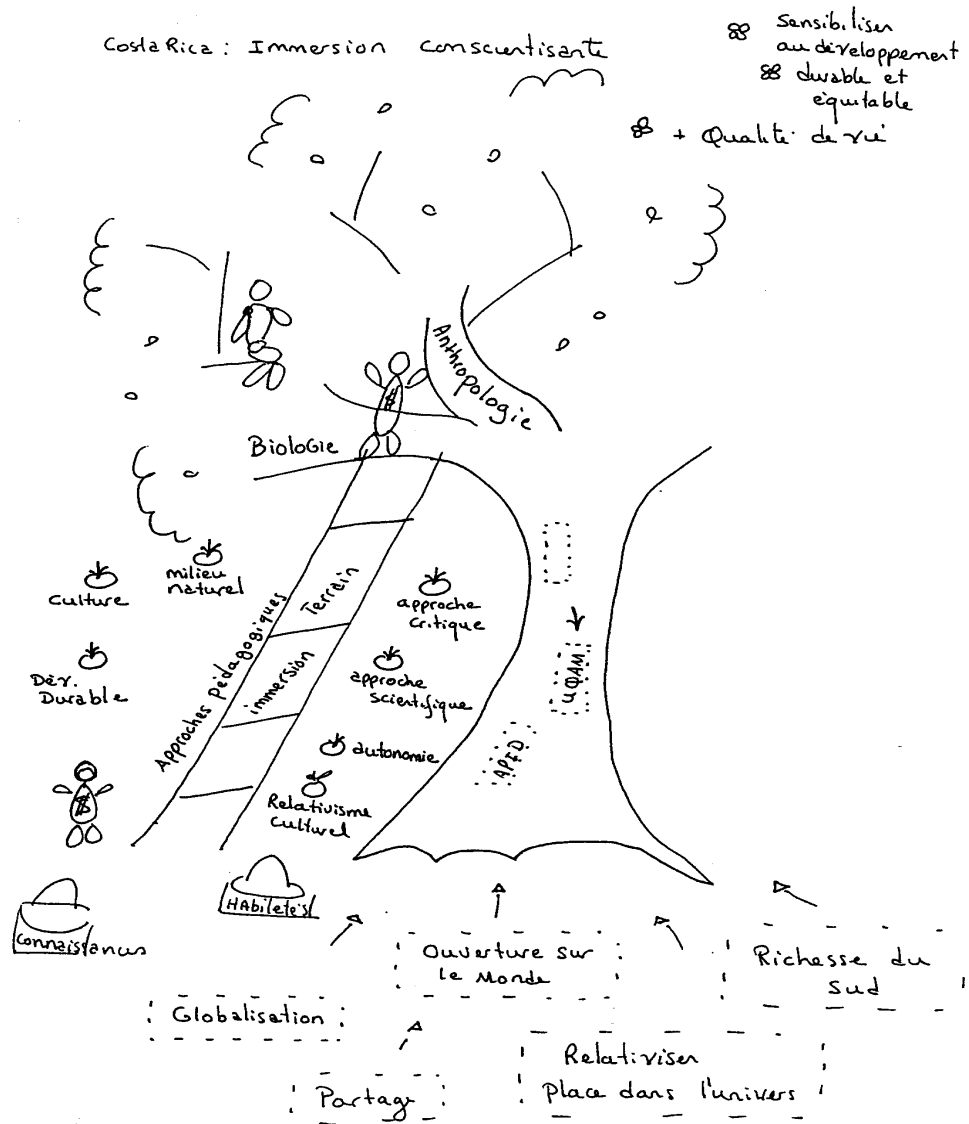 Costa Rica : Immersion conscientisante
Sensibiliser
au développement
durable et
équitable
+ Qualité de vie
Anthropologie
Biologie
$
milieu
naturel
culture
Dév.
Durable
Approches pédagogiques
Terrain
immersion
approche
critique
approche
scientifique
autonomie
Relativisme
culturel
UQAM
APID
$
HAbiletés
Connaissances
Ouverture sur
le Monde
Richesse du
Sud
Globalisation
Relativiser
Place dans l'univers
Partage